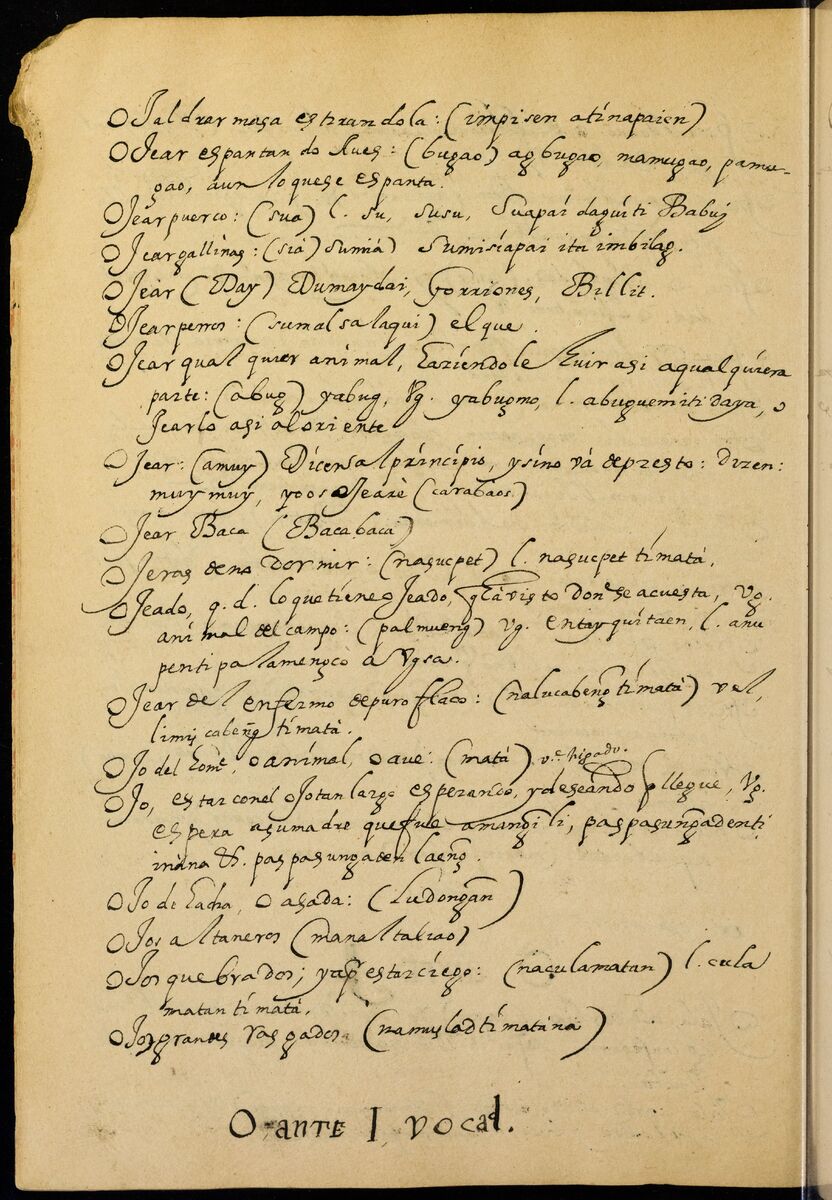 OJaldrar masa estirandola: (impisen atinapaien)
OJear espantando Aues: (bugao) agbugao, mamugao, pamu-
gao, aun lo que se espanta.
OJear puerco: (sua) l. su, susu, suapai daguiti Babuy
OJear gallinas: (sia) sumia) sumisiapai ita imbilag.
OJear (Day) Dumaydai, gorriones, Billit.
OJear perros: (sumalsalaqui) el que.
OJear qual quier animal, haziendole huir asi a qual quiera
parte: (abug) yabug, Vg. yabugmo, l. abuguemiti daya, o
Jearlo asi al oriente
OJear: (amuy) Dicen sal principio, y sino va de presto: dizen:
muy muy, yo os oJearè (carabaos.)
OJear Baca (Bacabaca)
OJeras de no dormir: (nasucpet) l. nasucpet timatá.
OJeado, q.d. lo que tiene oJeado, q̃ la visto donde se acuesta, Vg.
animal del campo: (palmueng) vg. entayquitaen, l. anu
penti palamengco a Vgsa.
OJear del enfermo de puro flaco: (nalucabeng timatá) vel,
limij cabeng timatà.
OJo del home, o animal, o ave: (matá) ve higado.
OJo, estar con el oJo tan largo esperando, y deseando q̃ llegue, Vg.
espera a su madre que fue amangili, paspasungadenti
inana &. paspasungaden laeng.
OJo de hacha, o asada: (Ludongan)
OJos altaneros (manaltaliao)
OJos quebrados; ya p.ʳ estar ciego: (naculamatan) l. cula
matan timatá.
OJos grandes rasgados (namuslad timatana)
O ANTE I vocal.